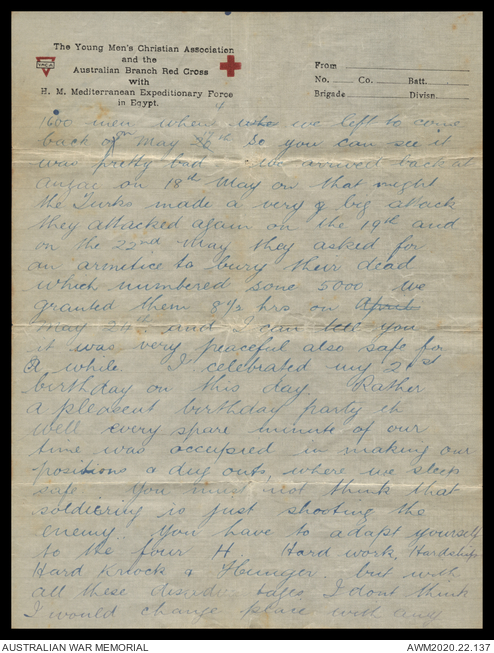 The Young Men's Christian Association
and the
Australian Branch Red Cross
with
H. M. Mediterranean Expeditionary Force
in Egypt.
YMCA
From
No. Co. Batt.
Brigade Divisn.
4
1600 men when we left to come
back on May 17th So you can see it
was pretty bad. we arrived back at
Anzac on 18th May on that night
the Turks made a very big attack
they attacked again on the 19th and
on the 22nd May they asked for
an armitice to bury their dead
which numbered some 5000. We
granted them 8½ hrs on April
May 24th and I can tell you
it was very peaceful also safe for
a while. I celebrated my 21st
birthday on this day. Rather
a pleasent birthday party eh
well every spare minute of our
time was occupied in making our
positions & dug outs, where we sleep
safe. You must not think that
soldiering is just shooting the
enemy. You have to adapt yourself
to the four H Hard work, Hardship
Hard Knock & Hunger. but with
all these disadvantages I dont think
I would change place with any
AUSTRALIAN WAR MEMORIAL
AWM2020.22.137